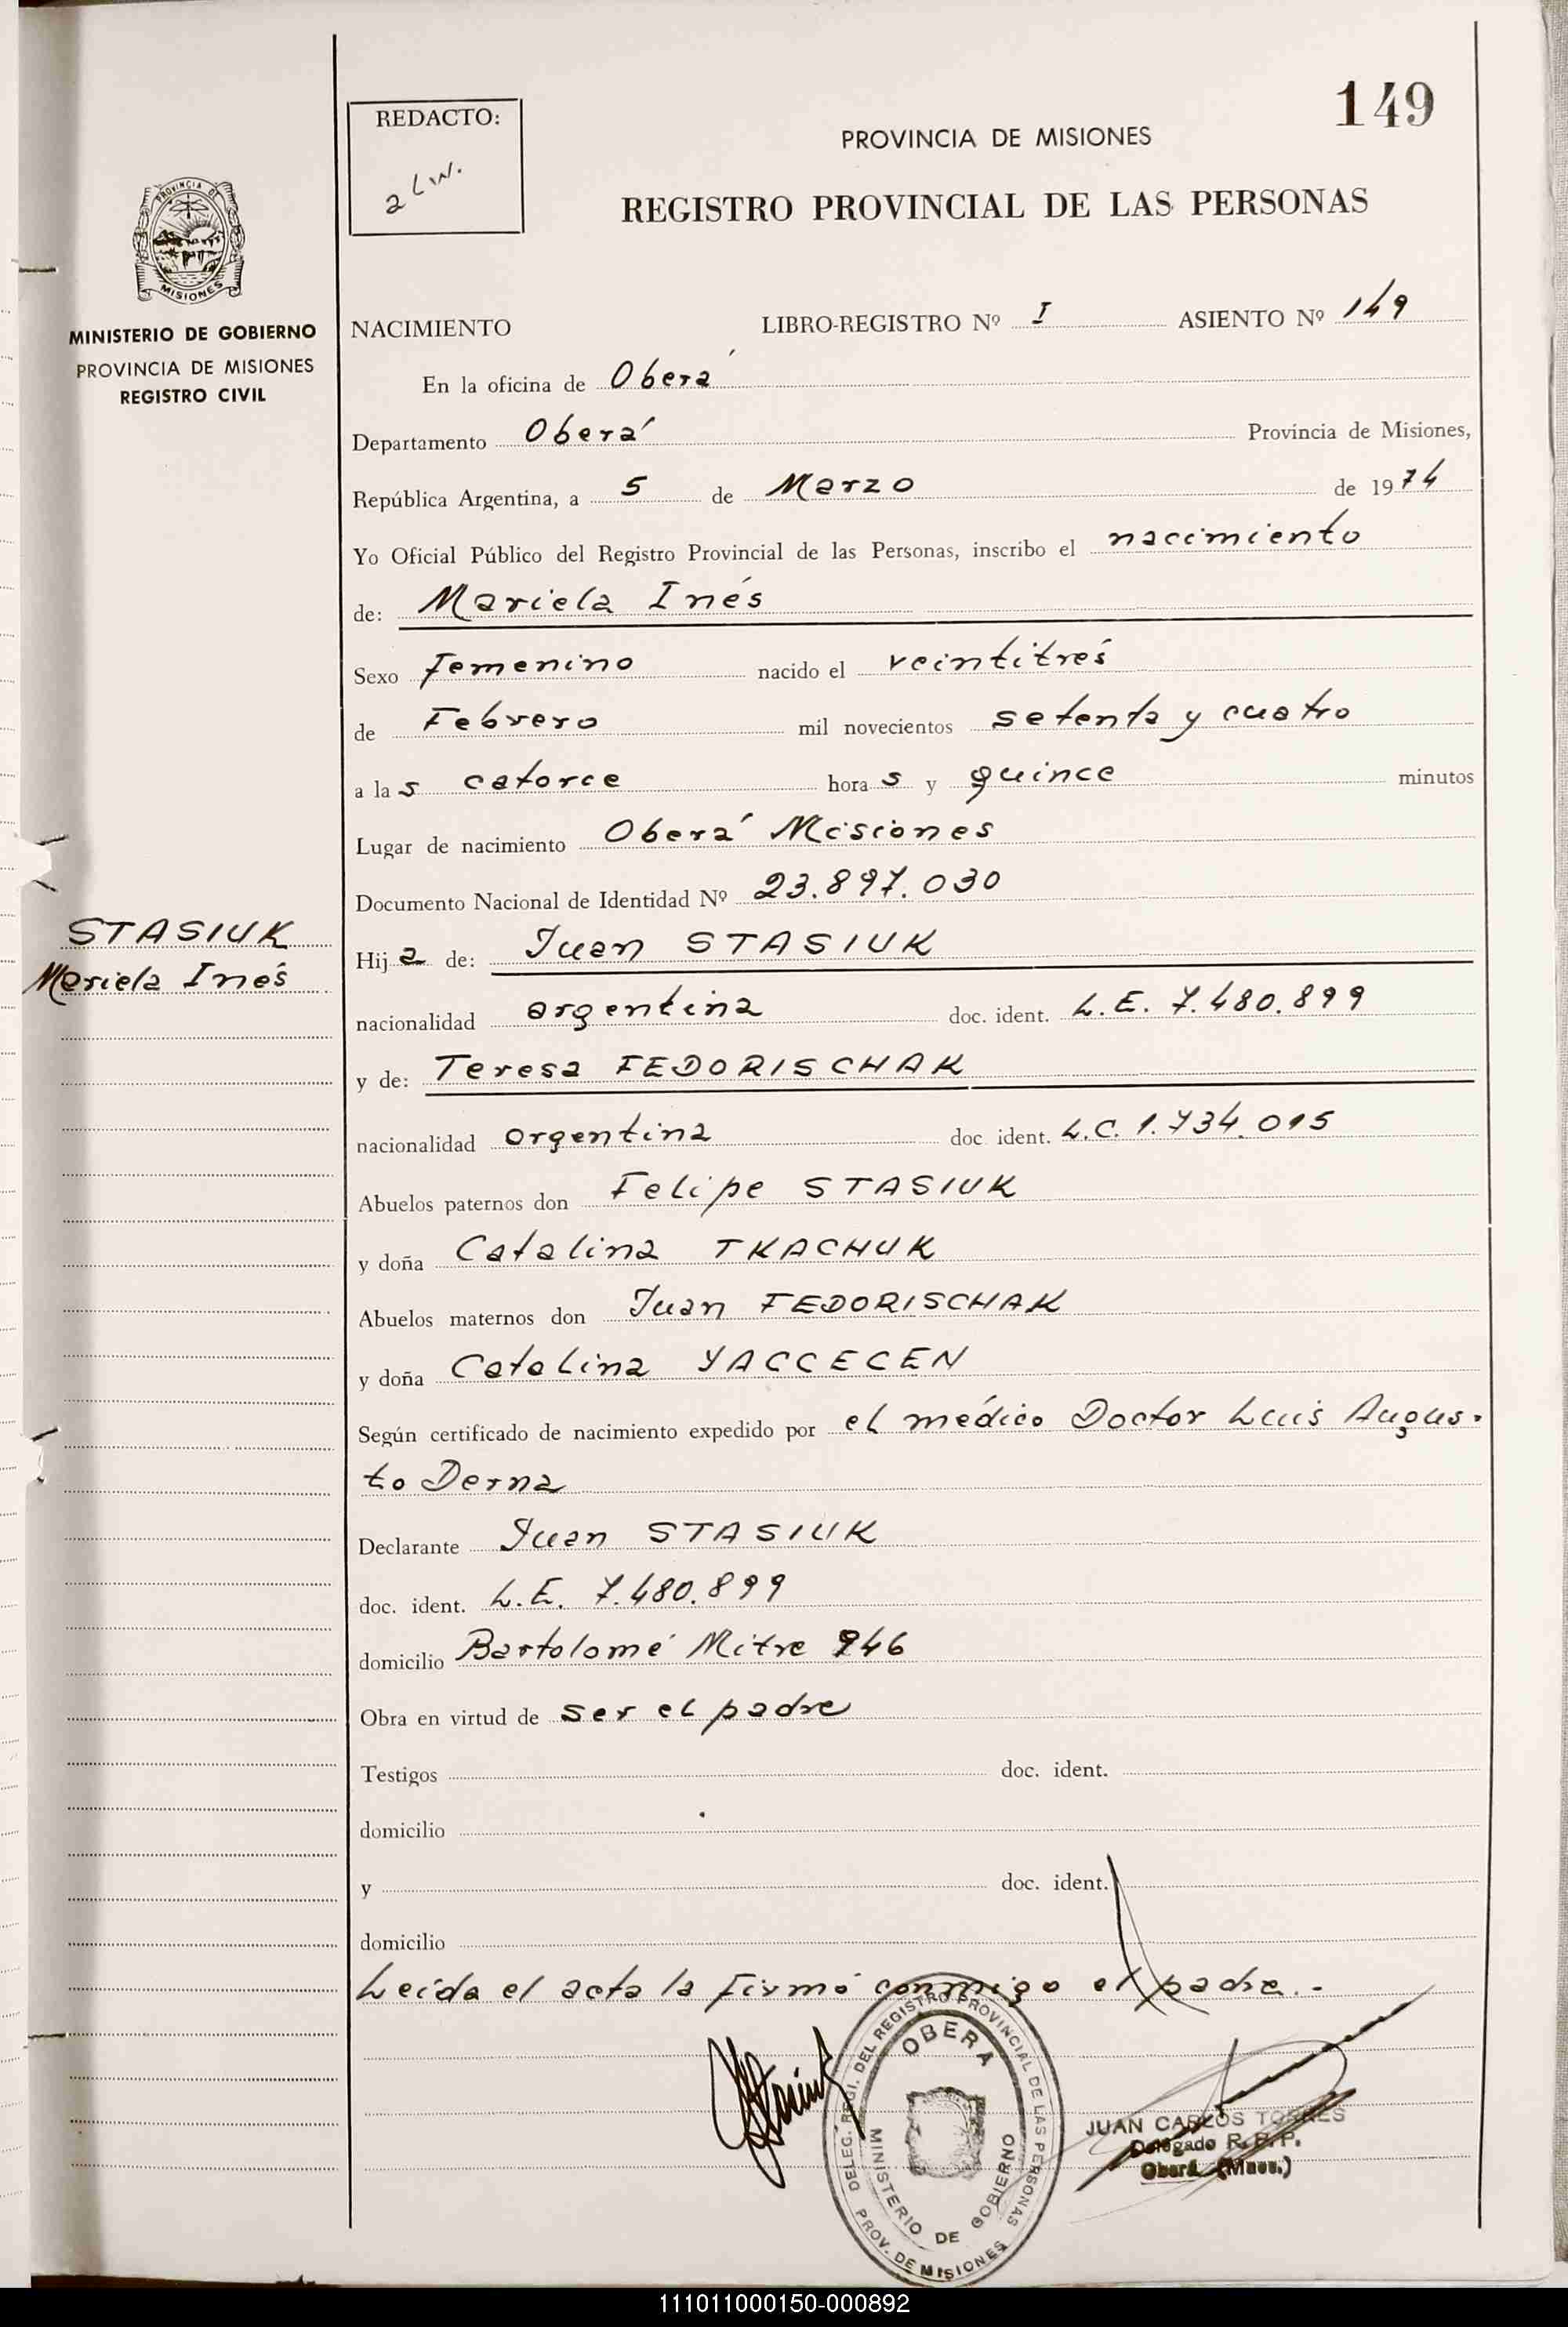 149
REDACTO:
2 Lin.
PROVINCIA DE MISIONES
REGISTRO PROVINCIAL DE LAS PERSONAS
PROVINCIA DE
MISIONES
MINISTERIO DE GOBIERNO
PROVINCIA DE MISIONES
REGISTRO CIVIL
NACIMIENTO LIBRO-REGISTRO Nº I ASIENTO Nº 149
En la oficina de Oberá
Departamento Oberá Provincia de Misiones,
República Argentina, a 5 de Marzo de 1974
Yo Oficial Público del Registro Provincial de las Personas, inscribo el nacimiento
de: Mariela Inés
Sexo Femenino nacido el veintitrés
de Febrero mil novecientos setenta y cuatro
a las catorce horas y quince minutos
Lugar de nacimiento Oberá Misiones
Documento Nacional de Identidad Nº 23.897.030
STASIUK
Mariela Inés
Hija de: Juan STASIUK
nacionalidad argentina doc. ident. L.E. 7.480.899
y de: Teresa FEDORISCHAK
nacionalidad argentina doc. ident. L.C. 1.734.015
Abuelos paternos don Felipe STASIUK
y doña Catalina TKACHUK
Abuelos maternos don Juan FEDORISCHAK
y doña Catalina YACCECEN
Según certificado de nacimiento expedido por el médico Doctor Luis Augus-
to Derna
Declarante Juan STASIUK
doc. ident. L.E. 7.480.899
domicilio Bartolomé Mitre 946
Obra en virtud de ser el padre
Testigos doc. ident.
domicilio
y doc. ident.
domicilio
Leída el acta la firmó conmigo el padre.-
DELEG. REGI. DEL REGISTRO PROVINCIAL DE LAS PERSONAS
OBERA
MINISTERIO DE GOBIERNO
PROV. DE MISIONES
JUAN CARLOS TORRES
Delegado R.P.P.
Oberá (Mnes.)
111011000150-000892